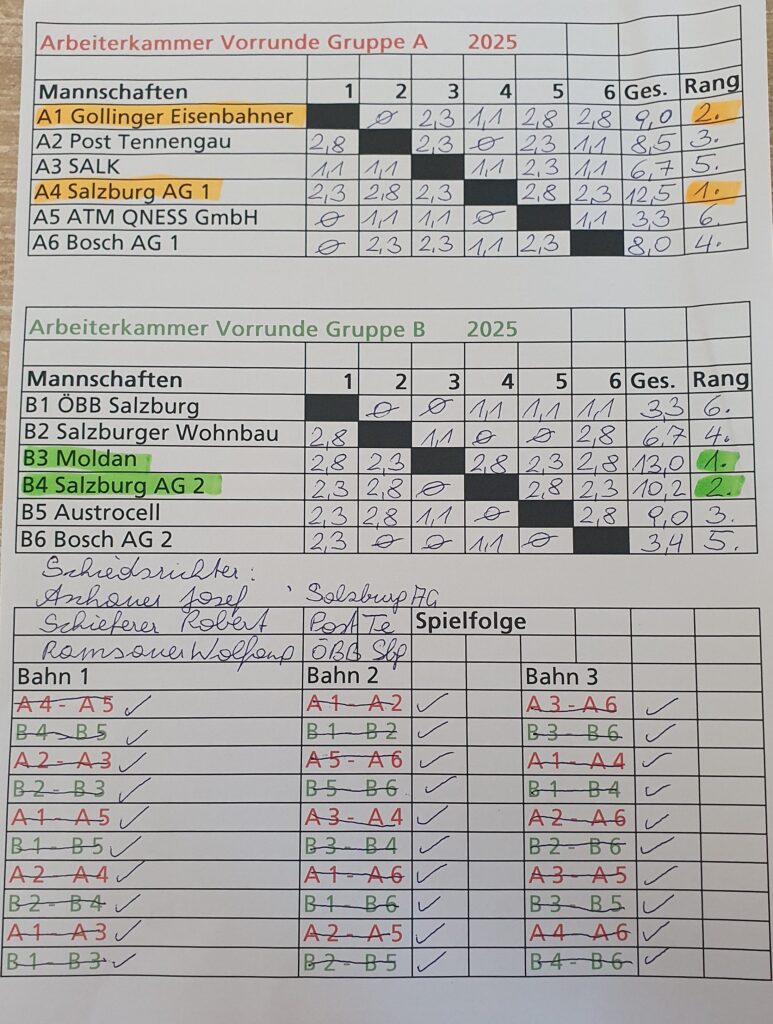 Arbeiterkammer Vorrunde Gruppe A 2025
Mannschaften 1 2 3 4 5 6 Ges. Rang
A1 Gollinger Eisenbahner ∅ 2,3 1,1 2,8 2,8 9,0 2.
A2 Post Tennengau 2,8 2,3 ∅ 2,3 1,1 8,5 3.
A3 SALK 1,1 1,1 1,1 2,3 1,1 6,7 5.
A4 Salzburg AG 1 2,3 2,8 2,3 2,8 2,3 12,5 1.
A5 ATM QNESS GmbH ∅ 1,1 1,1 ∅ 1,1 3,3 6.
A6 Bosch AG 1 ∅ 2,3 2,3 1,1 2,3 8,0 4.
Arbeiterkammer Vorrunde Gruppe B 2025
Mannschaften 1 2 3 4 5 6 Ges. Rang
B1 ÖBB Salzburg ∅ ∅ 1,1 1,1 1,1 3,3 6.
B2 Salzburger Wohnbau 2,8 1,1 ∅ ∅ 2,8 6,7 4.
B3 Moldan 2,8 2,3 2,8 2,3 2,8 13,0 1.
B4 Salzburg AG 2 2,3 2,8 ∅ 2,8 2,3 10,2 2.
B5 Austrocell 2,3 2,8 1,1 ∅ 2,8 9,0 3.
B6 Bosch AG 2 2,3 ∅ ∅ 1,1 ∅ 3,4 5.
Schiedsrichter:
Josef Salzburg AG
Schieferer Robert Post Te Spielfolge
Ramsauer Wolfgang ÖBB Sbg
Bahn 1 Bahn 2 Bahn 3
A 4 - A 5 ✓ A 1 - A 2 ✓ A 3 - A 6 ✓
B 4 - B 5 ✓ B 1 - B 2 ✓ B 3 - B 6 ✓
A 2 - A 3 ✓ A 5 - A 6 ✓ A 1 - A 4 ✓
B 2 - B 3 ✓ B 5 - B 6 ✓ B 1 - B 4 ✓
A 1 - A 5 ✓ A 3 - A 4 ✓ A 2 - A 6 ✓
B 1 - B 5 ✓ B 3 - B 4 ✓ B 2 - B 6 ✓
A 2 - A 4 ✓ A 1 - A 6 ✓ A 3 - A 5 ✓
B 2 - B 4 ✓ B 1 - B 6 ✓ B 3 - B 5 ✓
A 1 - A 3 ✓ A 2 - A 5 ✓ A 4 - A 6 ✓
B 1 - B 3 ✓ B 2 - B 5 ✓ B 4 - B 6 ✓